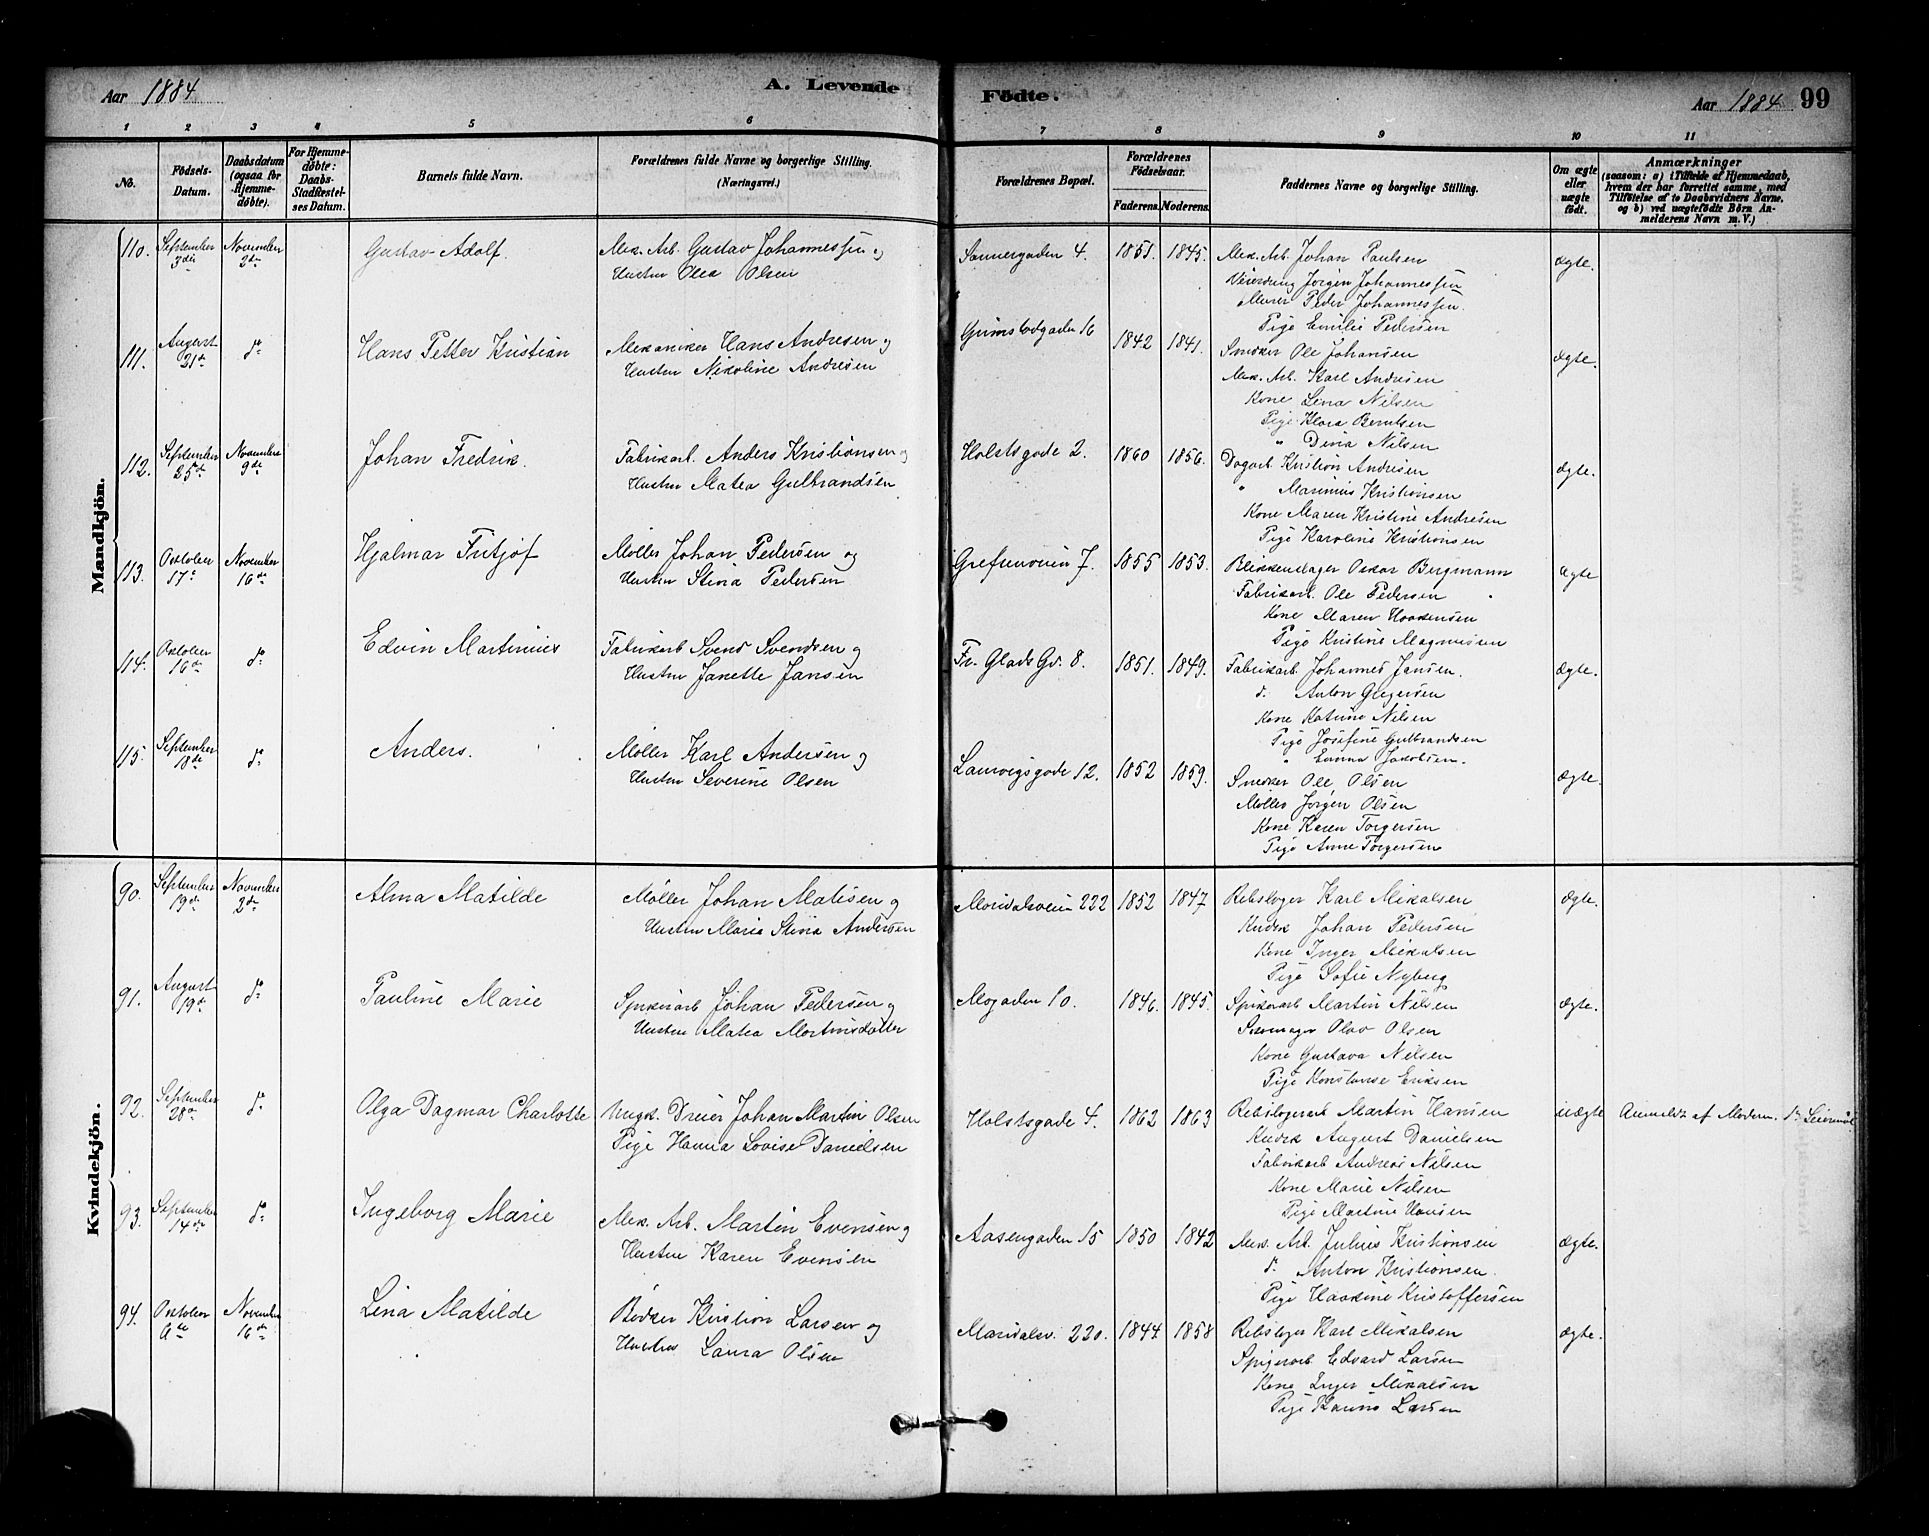 Aar 1884
A. Levende
Födte.
Aar 1884 99
1 2 3 4 5 6 7 8 9 10 11
No.
Födsels-Datum.
Daabsdatum (ogsaa for Hjemme-döbte).
For Hjemme-döbte: Daabs-Stadfæstel-ses Datum.
Barnets fulde Navn.
Forældrenes fulde Navne og borgerlige Stilling. (Næringsvei.)
Forældrenes Bopæl.
Forældrenes Födselsaar.
Faderens. Moderens.
Faddernes Navne og borgerlige Stilling.
Om ægte eller uægte födt.
Anmærkninger
(saasom: a) i Tilfælde af Hjemmedaab,
hvem der har forrettet samme, med
Tilföielse af to Daabsvidners Navne,
og b) ved uægtefödte Börn An-
melderens Navn m. V.)
Mandkjön.
110. September 3die November 2den Gustav Adolf. Mek. Arb. Gustav Johannessen og
Hustru Olea Olsen
Sannergaden 4. 1851. 1845. Mek. Arb. Johan Paulsen ægte.
Jørgen Johannessen
Murer Peder Johannessen
Pige Emilie Pedersen
111. August 21de do Hans Petter Kristian Mekaniker Hans Andresen og
Hustru Nikoline Andresen
Grimstadgaden 16 1842 1841. Snedker Ole Johansen ægte.
Mek. Arb. Karl Andresen
Kone Lina Nilsen
Pige Klara Berntsen
" Dina Nilsen
112. September 25de November 9de Johan Fredrik. Fabrikarb. Anders Kristiansen og
Hustru Matea Gulbrandsen
Holstsgade 2. 1860 1856. Dagarb. Kristian Andresen ægte.
" Marinius Kristiansen
Kone Maren Kristine Andresen
Pige Karoline Kristiansen
113. Oktober 17de November 16de Hjalmar Fritjof Møller Johan Pedersen og
Hustru Stina Pedersen
Grefsenveien 7. 1855 1853. Blikkenslager Oskar Bergmann ægte
Fabrikarb. Ole Pedersen
Kone Maren Haakensen
Pige Kristine Magnussen
114. Oktober 16de do Edvin Martinius Fabrikarb Svend Svendsen og
Hustru Janette Jansen
Fr. Glads Gd. 8. 1851. 1849. Fabrikarb. Johannes Jansen. ægte.
do Anton Gregersen
Kone Katrine Nilsen
Pige Josefine Gulbrandsen
" Emma Jakobsen.
115. September 18de do Anders. Møller Karl Andersen og
Hustru Severine Olsen
Laurvigsgade 12. 1852 1859. Snedker Ole Olsen ægte.
Møller Jørgen Olsen
Kone Karen Torgersen
Pige Anne Torgersen
Kvindekjön.
90. September 19de November 2den Alma Matilde Møller Johan Matisen og
Hustru Marie Stina Andersen
Maridalsveien 222 1852 1847 Rebslager Karl Mikalsen ægte.
Kudsk Johan Pedersen
Kone Inger Mikalsen
Pige Sofie Nyberg
91. August 19de do Pauline Marie Spikerarb Johan Pedersen og
Hustru Matea Martinsdatter
Mogaden 10. 1846. 1845. Spikerarb Martin Nilsen ægte.
Skomager Olav Olsen
Kone Gustava Nilsen
Pige Konstanse Eriksen
92. September 28de do Olga Dagmar Charlotte Ungk. Dreier Johan Martin Olsen
Pige Hanna Lovise Danielsen
Holstsgade 4. 1862 1863 Rebslagerarb Martin Hansen uægte Anmeldt af Moderen. 1ste Leiermål
Kudsk August Danielsen
Fabrikarb Andreas Nilsen
Kone Marie Nilsen
Pige Martine Hansen
93. September 14de do Ingeborg Marie Mek. Arb. Martin Evensen og
Hustru Karen Evensen
Aasengaden 15 1850 1842 Mek. Arb. Julius Kristiansen ægte.
do Anton Kristiansen.
Pige Haakine Kristoffersen
94. Oktober 9de November 16de Lina Matilde Bødker Kristian Larsen og
Hustru Laura Olsen
Maridalsv. 220. 1844 1858 Rebslager Karl Mikalsen ægte.
Spigerarb Edvard Larsen
Kone Inger Mikalsen
Pige Larsen